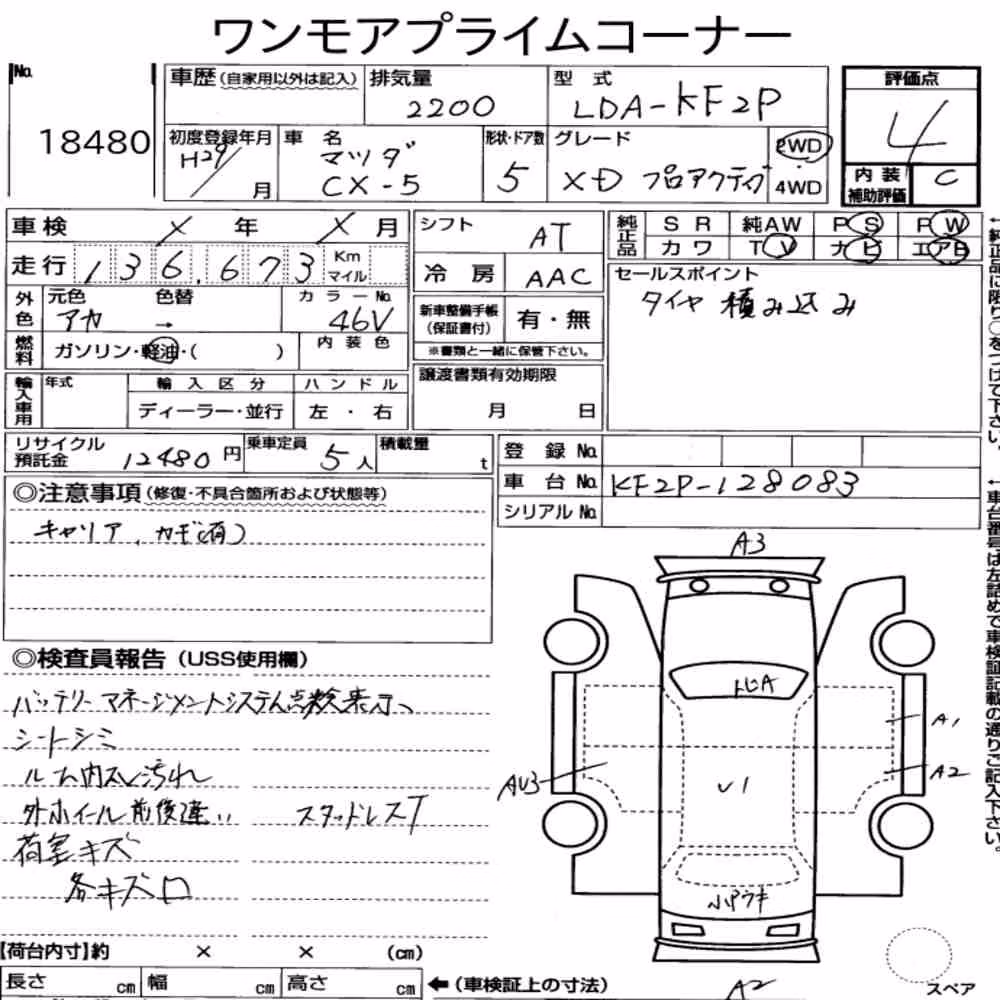 ワンモアプライムコーナー
No.
18480
車歴(自家用以外は記入)
排気量
2200
型 式
LDA-KF2P
評価点
4
初度登録年月
H29/ 月
車 名
マツダ
CX-5
形状・ドア数
5
グレード
XD プロアクティブ
2WD
4WD
内 装
補助評価
C
車検 × 年 × 月
走行 136,673 Km
マイル
シフト
AT
冷 房
AAC
純正品
S R 純AW P S P W
カ ワ T V ナ ビ エアB
セールスポイント
タイヤ 積み込み
外色
元色 色替 カラーNo.
アカ → 46V
燃料
ガソリン・軽油・( )
内 装 色
新車整備手帳
(保証書付)
有・無
※書類と一緒に保管下さい。
譲渡書類有効期限
月 日
輸入車用
年式
輸 入 区 分
ハ ン ド ル
ディーラー・並行
左 ・ 右
リサイクル
預託金
12480 円
乗車定員
5 人
積載量
t
登 録 No.
車 台 No.
KF2P-128083
シリアル No.
◎注意事項(修復・不具合箇所および状態等)
キャリア、カギ(有)
◎検査員報告(USS使用欄)
バッテリーマネージメントシステム点検表示、
シートシミ
ルーム内スレ汚れ
外ホイール前後違い スタッドレスT
荷室キズ
各キズ
A3
A1
A2
AU3
U1
A2
【荷台内寸】約 × × (cm)
長さ cm 幅 cm 高さ cm
←(車検証上の寸法)
スペア
←純正品に限り○をつけて下さい。
←車台番号は左詰めで車検証記載の通りご記入下さい。